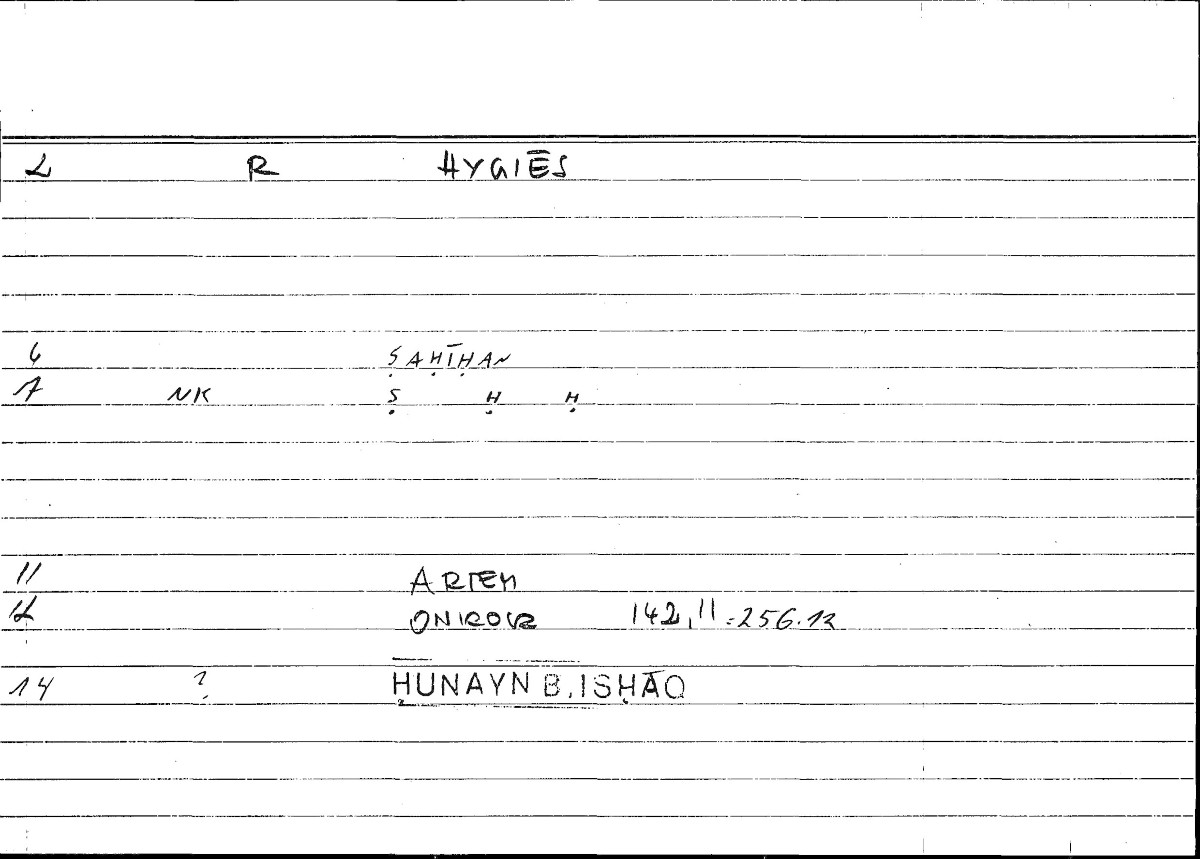 2 R HYGIĒS
6 ṢAḤĪḤAN
7 NK Ṣ Ḥ Ḥ
11 ARTEM
12 ONIROCR 142,11 = 256.12
14 ? ḤUNAYN B. ISḤĀQ